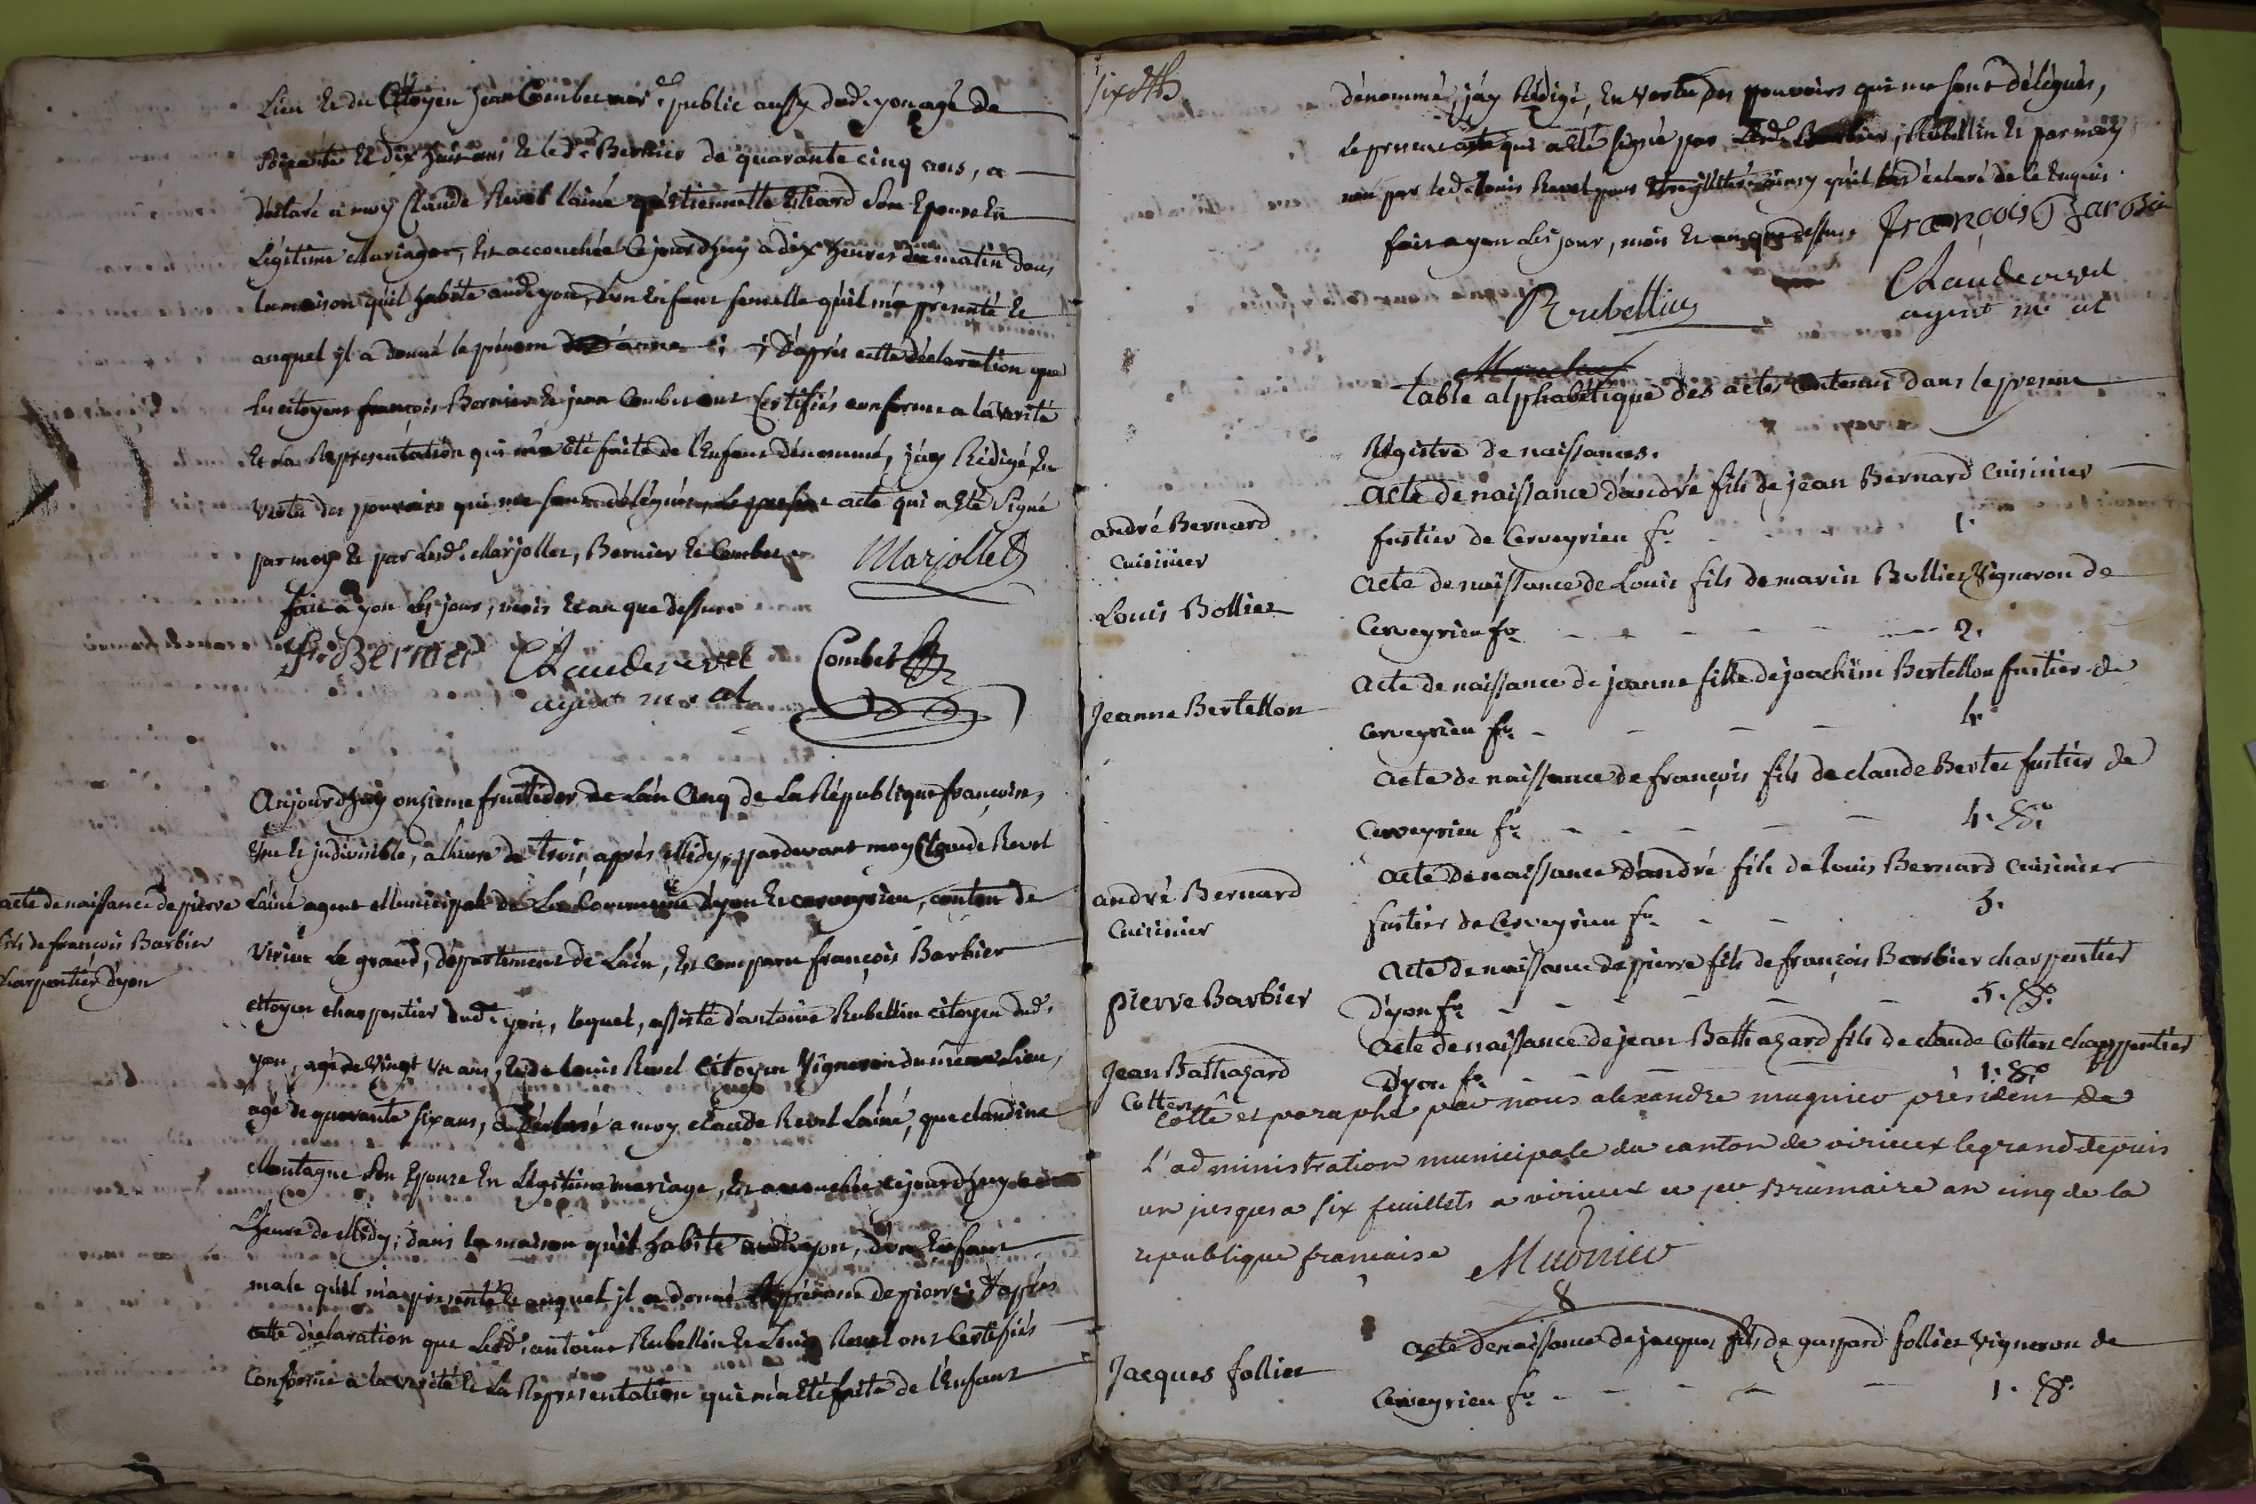 Lieu et du Citoyen jean Combet not.re public aussy dud. yon agé de
soixante et dix huit ans et led. Bernier de quarante cinq ans, a
déclaré a moy Claude Revel l'ainé qu'Etiennette son Epouse en
Légitime Mariage, est accouchée ce jourd'huy a dix heures du matin dans
la maison qu'il habite aud. yon, d'un Enfant femelle qu'il m'a présenté et
auquel il a donné le prénom d'anne ; d'après cette déclaration que
les citoyens françois Bernier et jean Combet ont Certifiés conforme a la verité
et la Représentation qui m'a été faite de l'Enfant dénommé, j'ay Rédigé, en
vertu des pouvoirs qui me sont délégués, le présent acte qui a été Signé
par moy et par lesd. Marjollet, Bernier et Combet
fait a yon les jour, mois et an que dessus
Marjollet
fr. Bernier Claude revel Combet
agent m al
Aujourd'huy onzieme fructidor de L'an Cinq de La République françoise,
une et indivisible, a lheure de trois après Midy, pardevant moy Claude Revel
L'ainé agent Municipal de La Commune d'yon et cerveyrieu, canton de
Virieu Le grand, département de L'ain, est comparu françois Barbier
citoyen charpentier dud. yon, lequel, assisté d'antoine Rubellin citoyen dud.
yon, agé de Vingt un ans, et de Louis Revel Citoyen Vigneron du même Lieu,
agé de quarante six ans, a déclaré a moy claude Revel L'ainé, que claudine
Montagne son Epouze en Légitime mariage, est accouchée ce jourd'huy
L'heure de Midy, dans la maison qu'il habite aud. yon, d'un Enfant
male qu'il m'a présenté et auquel il a donné le prénom de pierre ; d'après
cette déclaration que Lesd. antoine Rubellin et Louis Revel ont Certifiés
Conforme a la verité et La Représentation qui m'a Eté faite de l'Enfant
acte de naissance de pierre
fils de françois Barbier
charpentier d'yon
six
dénommé, j'ay Rédigé, En vertu des pouvoirs qui me sont délégués,
le présent acte qui a Eté signé par Led. Barbier, Rubellin et par moy
non par led. Louis Revel pour qu'il a déclaré de ce Enquis.
fait a yon les jour, mois et an que dessus françois Barbier
Rubellin Claude revel
agent m al
table alphabétique des actes Contenus dans le present
Régistre de naissances.
andré Bernard
Cuisinier
acte de naissance d'andré fils de jean Bernard Cuisinier
fustier de Cerveyrieu f.o 1.
Louis Bollier
acte de naissance de Louis fils de marin Bollier Vigneron de
Cerveyrieu f.o 2.
Jeanne Bertellon
acte de naissance de jeanne fille de joachim Bertellon fustier de
Cerveyrieu f.o 4.
acte de naissance de françois fils de claude Bertet fustier de
Cerveyrieu f.o 4. V.o
andré Bernard
Cuisinier
acte de naissance d'andré fils de louis Bernard Cuisinier
fustier de Cerveyrieu f.o 5.
pierre Barbier
acte de naissance de pierre fils de françois Barbier charpentier
d'yon f.o 5. V.o
Jean Bathazard
Cottet
acte de naissance de jean Bathazard fils de claude Cottet charppentier
d'yon f.o 1. V.o
Cotté et paraphé par nous alexandre mugnier président de
l'administration municipale du canton de virieux legrand depuis
un jusqu'a six feuillets a virieux ce Brumaire an cinq de la
republique francaise Mugnier
Jacques follier
acte de naissance de jacques fils de gaspard follier Vigneron de
Cerveyrieu f.o 1. V.o